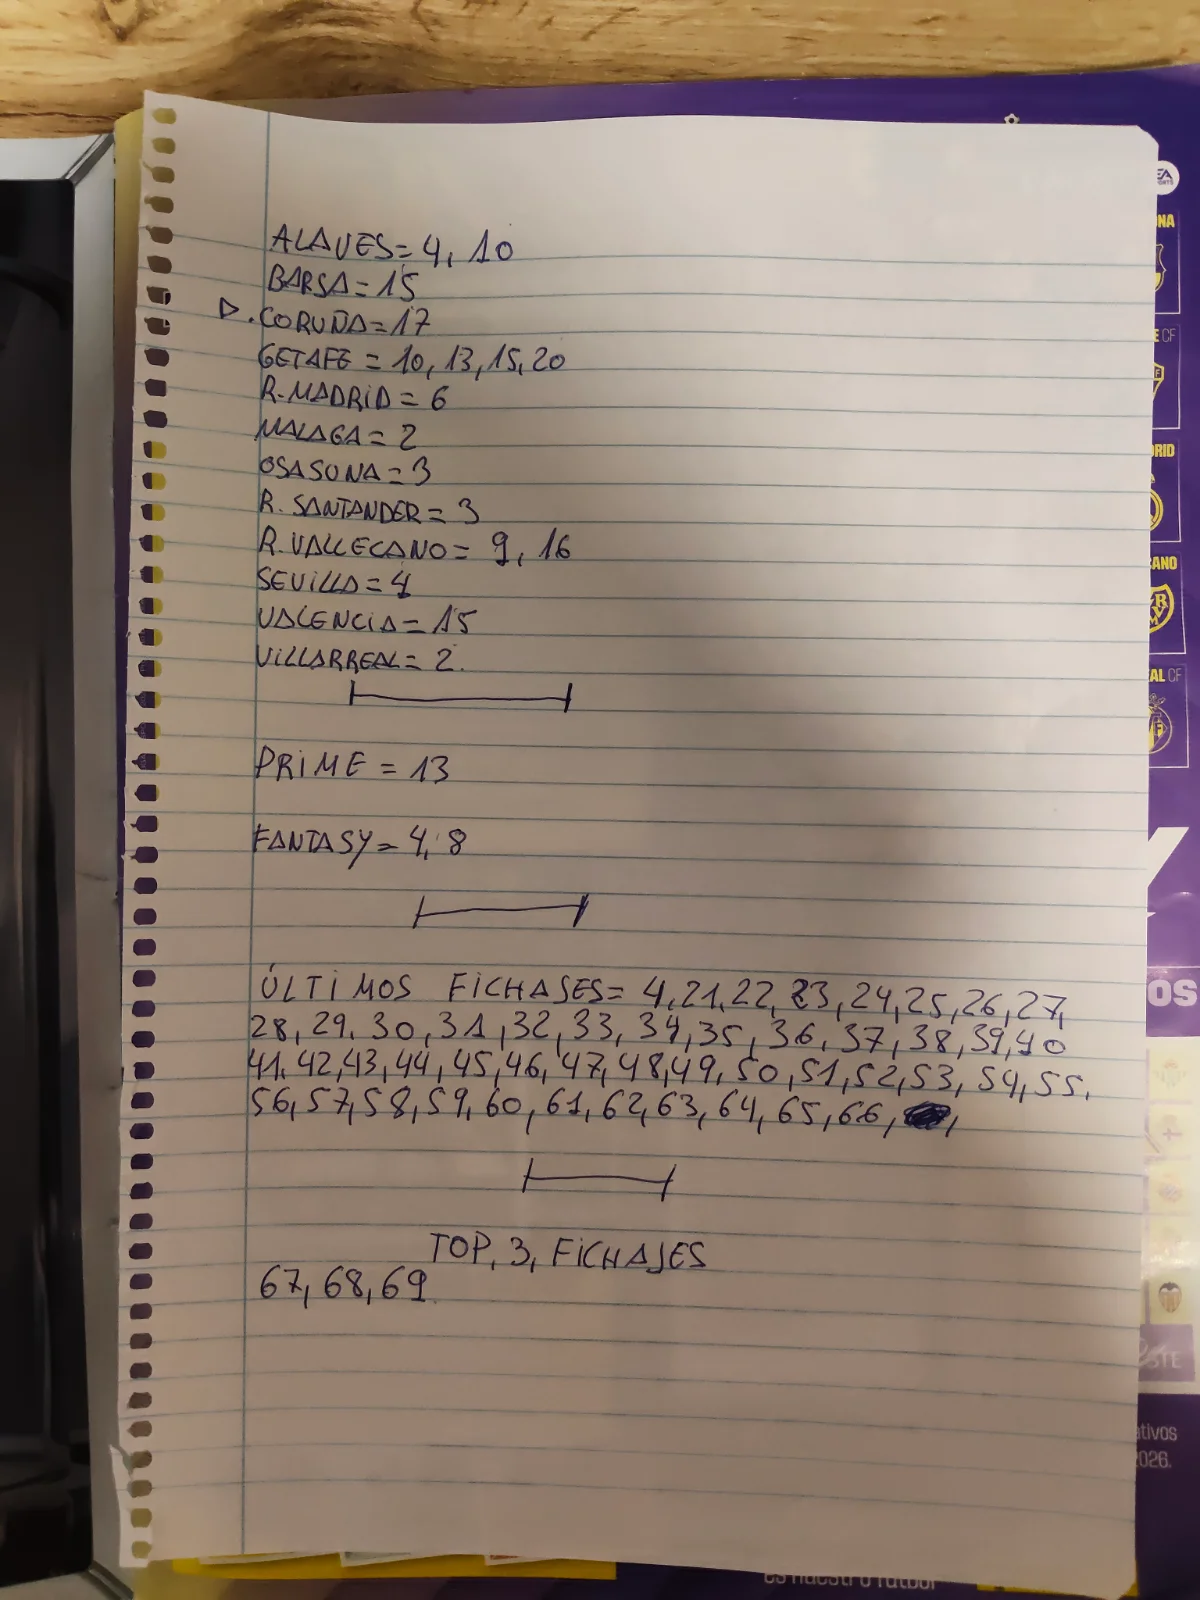 ALAVES= 4, 10
BARSA= 15
D. CORUÑA= 17
GETAFE = 10, 13, 15, 20
R. MADRID = 6
MALAGA = 2
OSASUNA = 3
R. SANTANDER = 3
R. VALLECANO = 9, 16
SEVILLA = 4
VALENCIA = 15
VILLARREAL = 2.
PRIME = 13
FANTASY = 4, 8
ÚLTIMOS FICHASES= 4, 21, 22, 23, 24, 25, 26, 27,
28, 29, 30, 31, 32, 33, 34, 35, 36, 37, 38, 39, 40
41, 42, 43, 44, 45, 46, 47, 48, 49, 50, 51, 52, 53, 54, 55,
56, 57, 58, 59, 60, 61, 62, 63, 64, 65, 66,
TOP, 3, FICHAJES
67, 68, 69
EA
NA
E CF
RID
CANO
AL CF
OS
STE
ativos
2026.